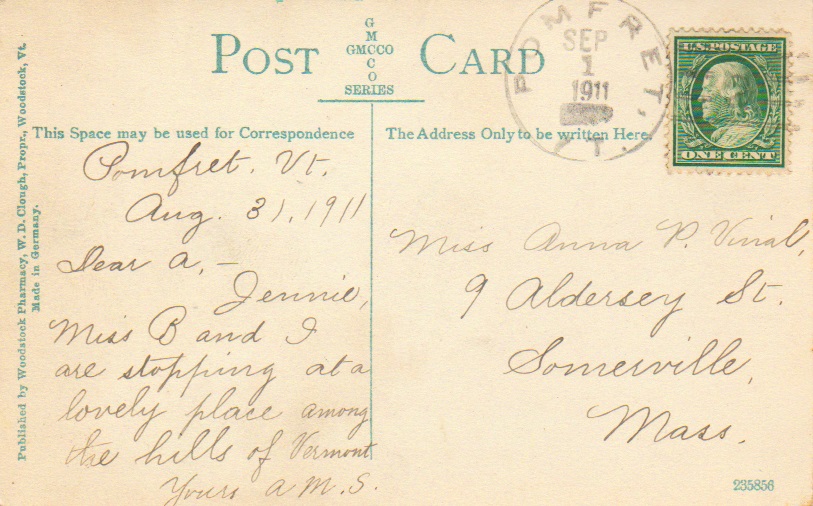 POST CARD
G
M
GMCCO
C
O
SERIES
POMFRET, VT.
SEP
1
1911
U.S. POSTAGE
ONE CENT
This Space may be used for Correspondence
The Address Only to be written Here.
Pomfret. Vt.
Aug. 31, 1911
Dear A, –
Jennie,
Miss B and I
are stopping at a
lovely place among
the hills of Vermont
Yours A.M.S.
Miss Anna P. Vinal,
9 Aldersey St.
Somerville,
Mass.
Published by Woodstock Pharmacy, W. D. Clough, Propr., Woodstock, Vt.
Made in Germany.
235856